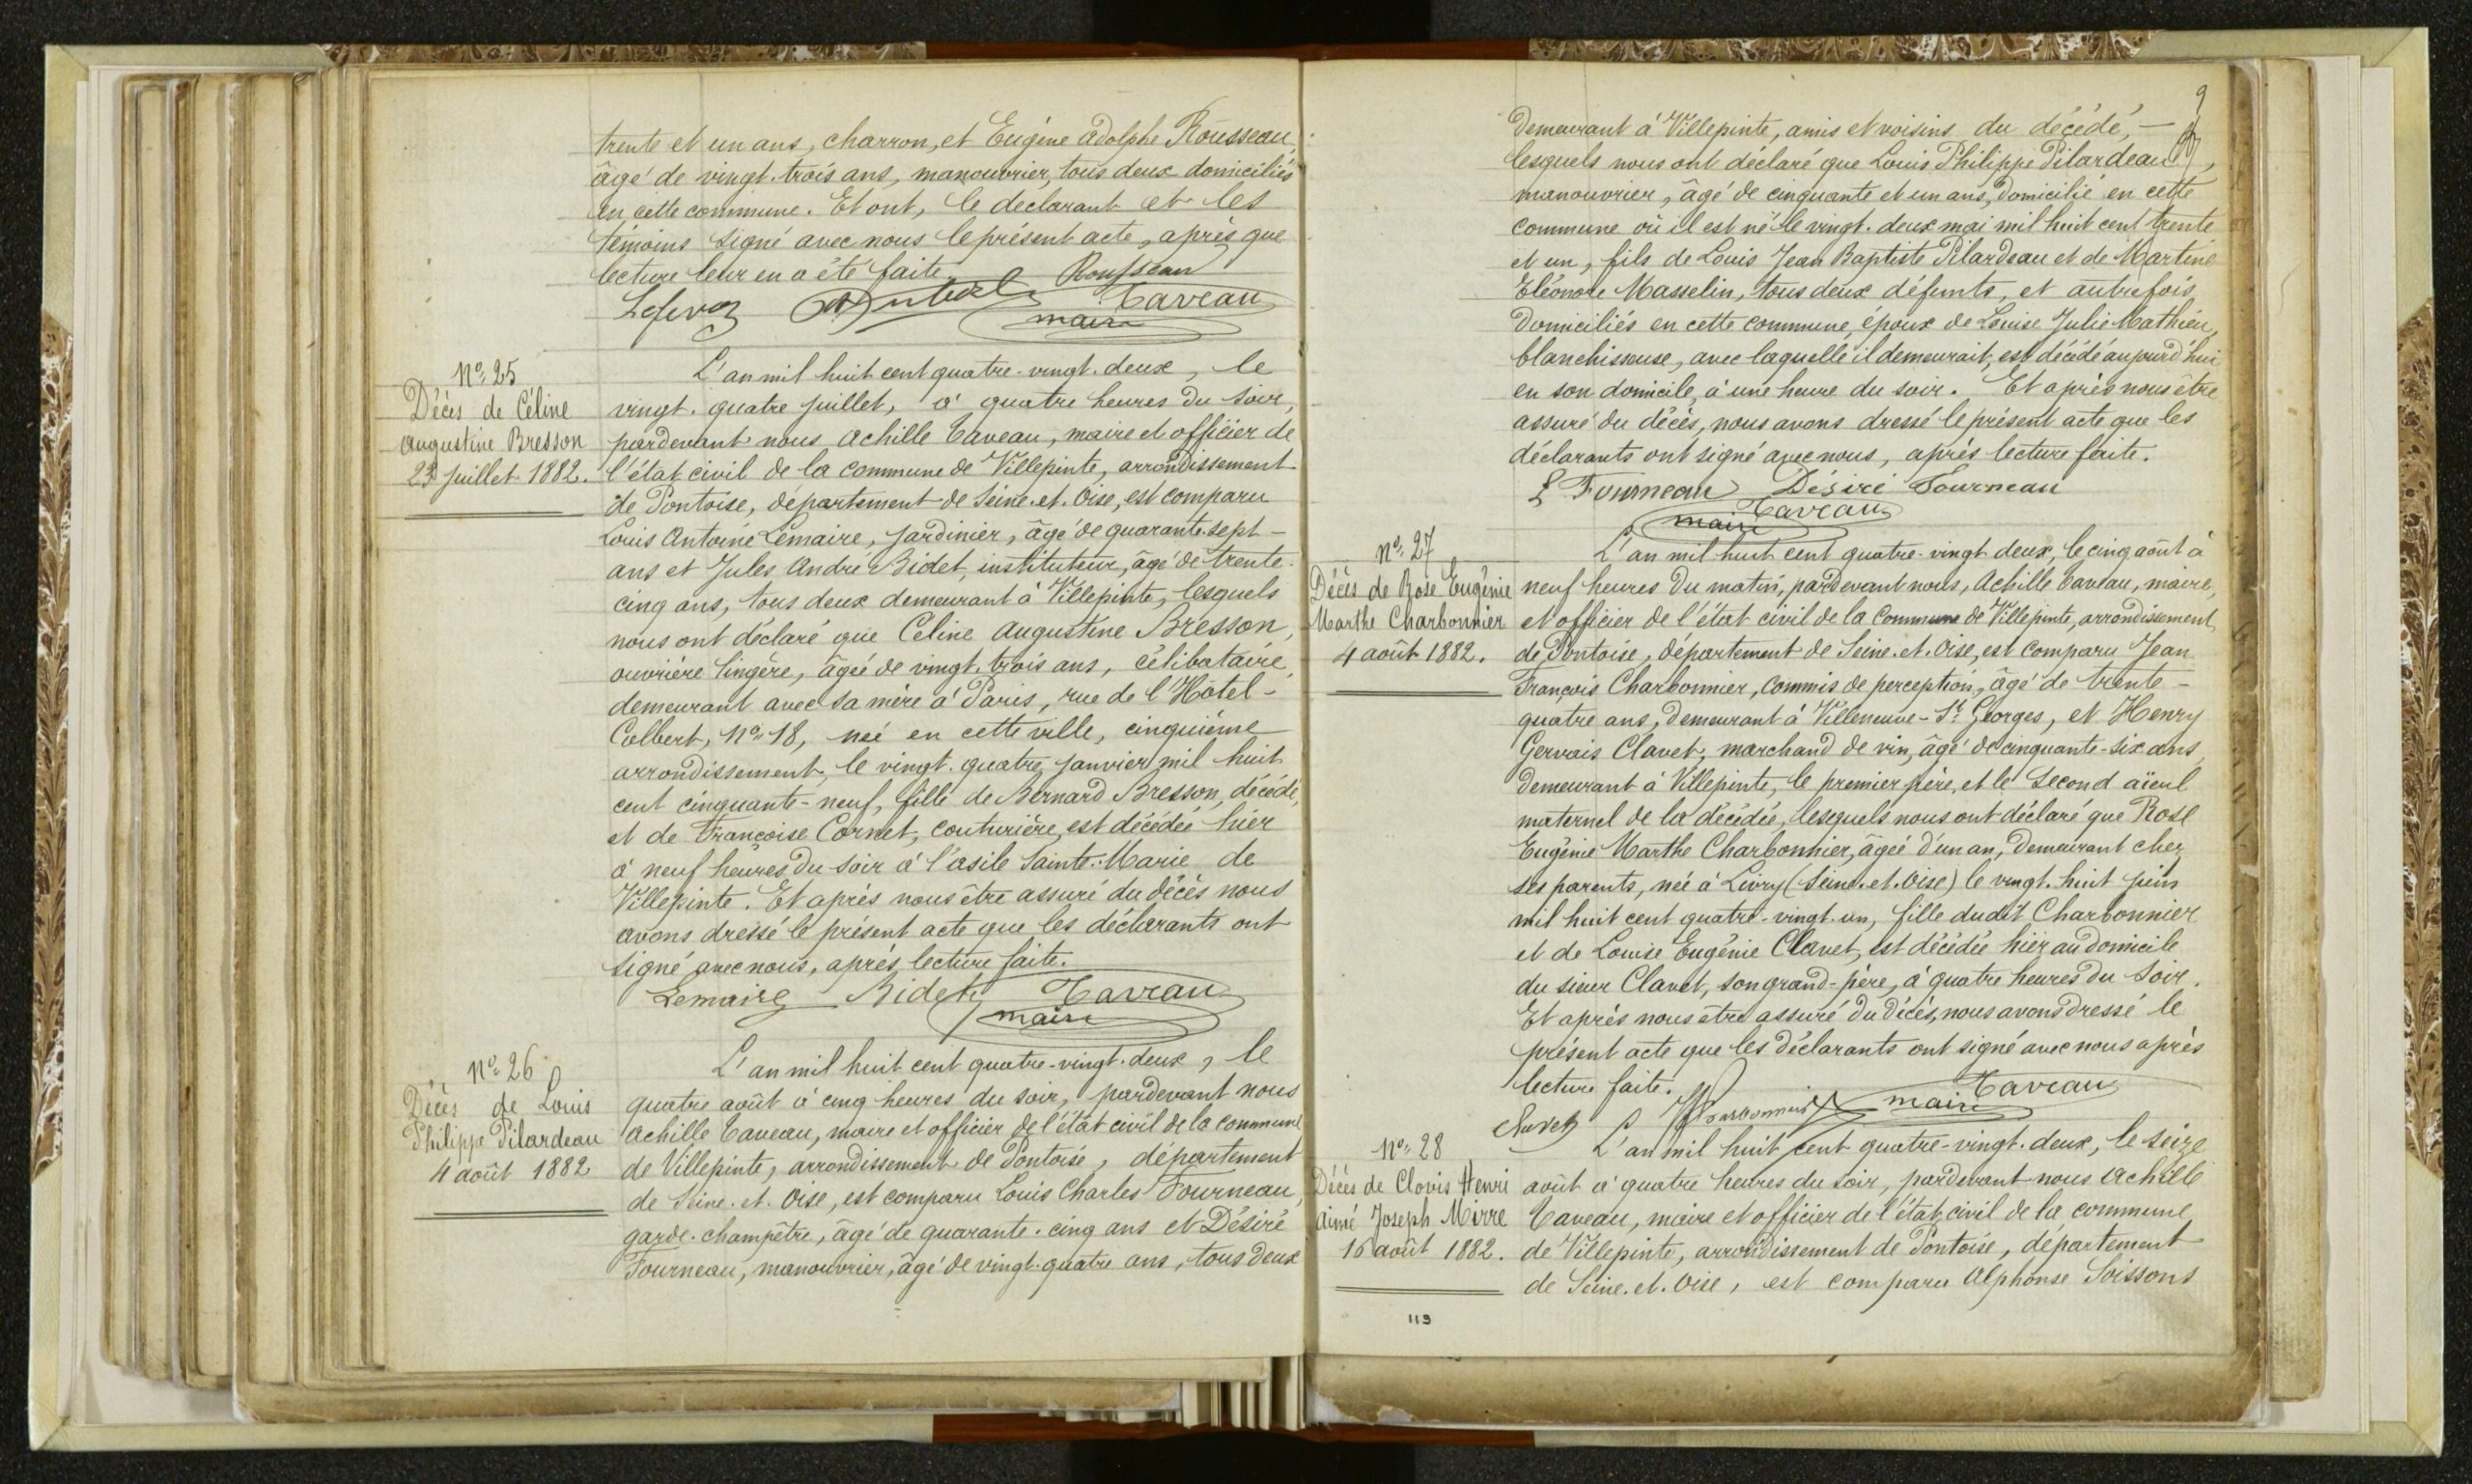 trente et un ans, charron, et Eugène Adolphe Rousseau,
âgé de vingt-trois ans, manouvrier, tous deux domiciliés
en cette commune. Et ont, le déclarant et les
témoins signé avec nous le présent acte, après que
lecture leur en a été faite.
Rousseau
Taveau
maire
Nº 25
Décès de Céline
Augustine Bresson
23 juillet 1882.
L'an mil huit cent quatre-vingt-deux, le
vingt-quatre juillet, à quatre heures du soir,
pardevant nous Achille Taveau, maire et officier de
l'état civil de la commune de Villepinte, arrondissement
de Pontoise, département de Seine-et-Oise, est comparu
Louis Antoine Lemaire, jardinier, âgé de quarante-sept-
ans et Jules André Bidet, instituteur, âgé de trente-
cinq ans, tous deux demeurant à Villepinte, lesquels
nous ont déclaré que Céline Augustine Bresson,
ouvrière lingère, âgée de vingt-trois ans, célibataire,
demeurant avec sa mère à Paris, rue de l'Hôtel-
Colbert, Nº 18, née en cette ville, cinquième
arrondissement, le vingt-quatre janvier mil huit
cent cinquante-neuf, fille de Bernard Bresson, décédé,
et de Françoise Cornet, couturière, est décédée hier
à neuf heures du soir à l'asile Sainte-Marie de
Villepinte. Et après nous être assuré du décès nous
avons dressé le présent acte que les déclarants ont
signé avec nous, après lecture faite.
Lemaire Bidet Taveau
maire
Nº 26
Décès de Louis
Philippe Pilardeau
4 août 1882
L'an mil huit cent quatre-vingt-deux, le
quatre août à cinq heures du soir, pardevant nous
Achille Taveau, maire et officier de l'état civil de la commune
de Villepinte, arrondissement de Pontoise, département
de Seine-et-Oise, est comparu Louis Charles Fourneau,
garde-champêtre, âgé de quarante-cinq ans et Désiré
Fourneau, manouvrier, âgé de vingt-quatre ans, tous deux
9
demeurant à Villepinte, amis et voisins du décédé, —
lesquels nous ont déclaré que Louis Philippe Pilardeau,
manouvrier, âgé de cinquante et un ans, domicilié en cette
commune où il est né le vingt-deux mai mil huit cent trente
et un, fils de Louis Jean Baptiste Pilardeau et de Martine
Eléonore Masselin, tous deux défunts, et autrefois
domiciliés en cette commune, époux de Louise Julie Mathieu,
blanchisseuse, avec laquelle il demeurait, est décédé aujourd'hui
en son domicile, à une heure du soir. Et après nous être
assuré du décès, nous avons dressé le présent acte que les
déclarants ont signé avec nous, après lecture faite.
L Fourneau Désiré Fourneau
Taveau
maire
Nº 27
Décès de Rose Eugénie
Marthe Charbonnier
4 août 1882.
L'an mil huit cent quatre-vingt deux, le cinq août à
neuf heures du matin, pardevant nous, Achille Taveau, maire,
et officier de l'état civil de la commune de Villepinte, arrondissement
de Pontoise, département de Seine-et-Oise, est comparu Jean
François Charbonnier, commis de perception, âgé de trente-
quatre ans, demeurant à Villeneuve-St Georges, et Henry
Gervais Clavet, marchand de vin, âgé de cinquante-six ans,
demeurant à Villepinte, le premier père, et le second aïeul
maternel de la décédée, lesquels nous ont déclaré que Rose
Eugénie Marthe Charbonnier, âgée d'un an, demeurant chez
ses parents, née à Livry (Seine-et-Oise) le vingt-huit juin
mil huit cent quatre-vingt-un, fille dudit Charbonnier
et de Louise Eugénie Clavet, est décédée hier au domicile
du sieur Clavet, son grand-père, à quatre heures du soir.
Et après nous être assuré du décès, nous avons dressé le
présent acte que les déclarants ont signé avec nous après
lecture faite.
Clavet Charbonnier Taveau
maire
Nº 28
Décès de Clovis Henri
Aimé Joseph Mirre
16 août 1882.
L'an mil huit cent quatre-vingt-deux, le seize
août à quatre heures du soir, pardevant nous Achille
Taveau, maire et officier de l'état civil de la commune
de Villepinte, arrondissement de Pontoise, département
de Seine-et-Oise, est comparu Alphonse Soissons
113